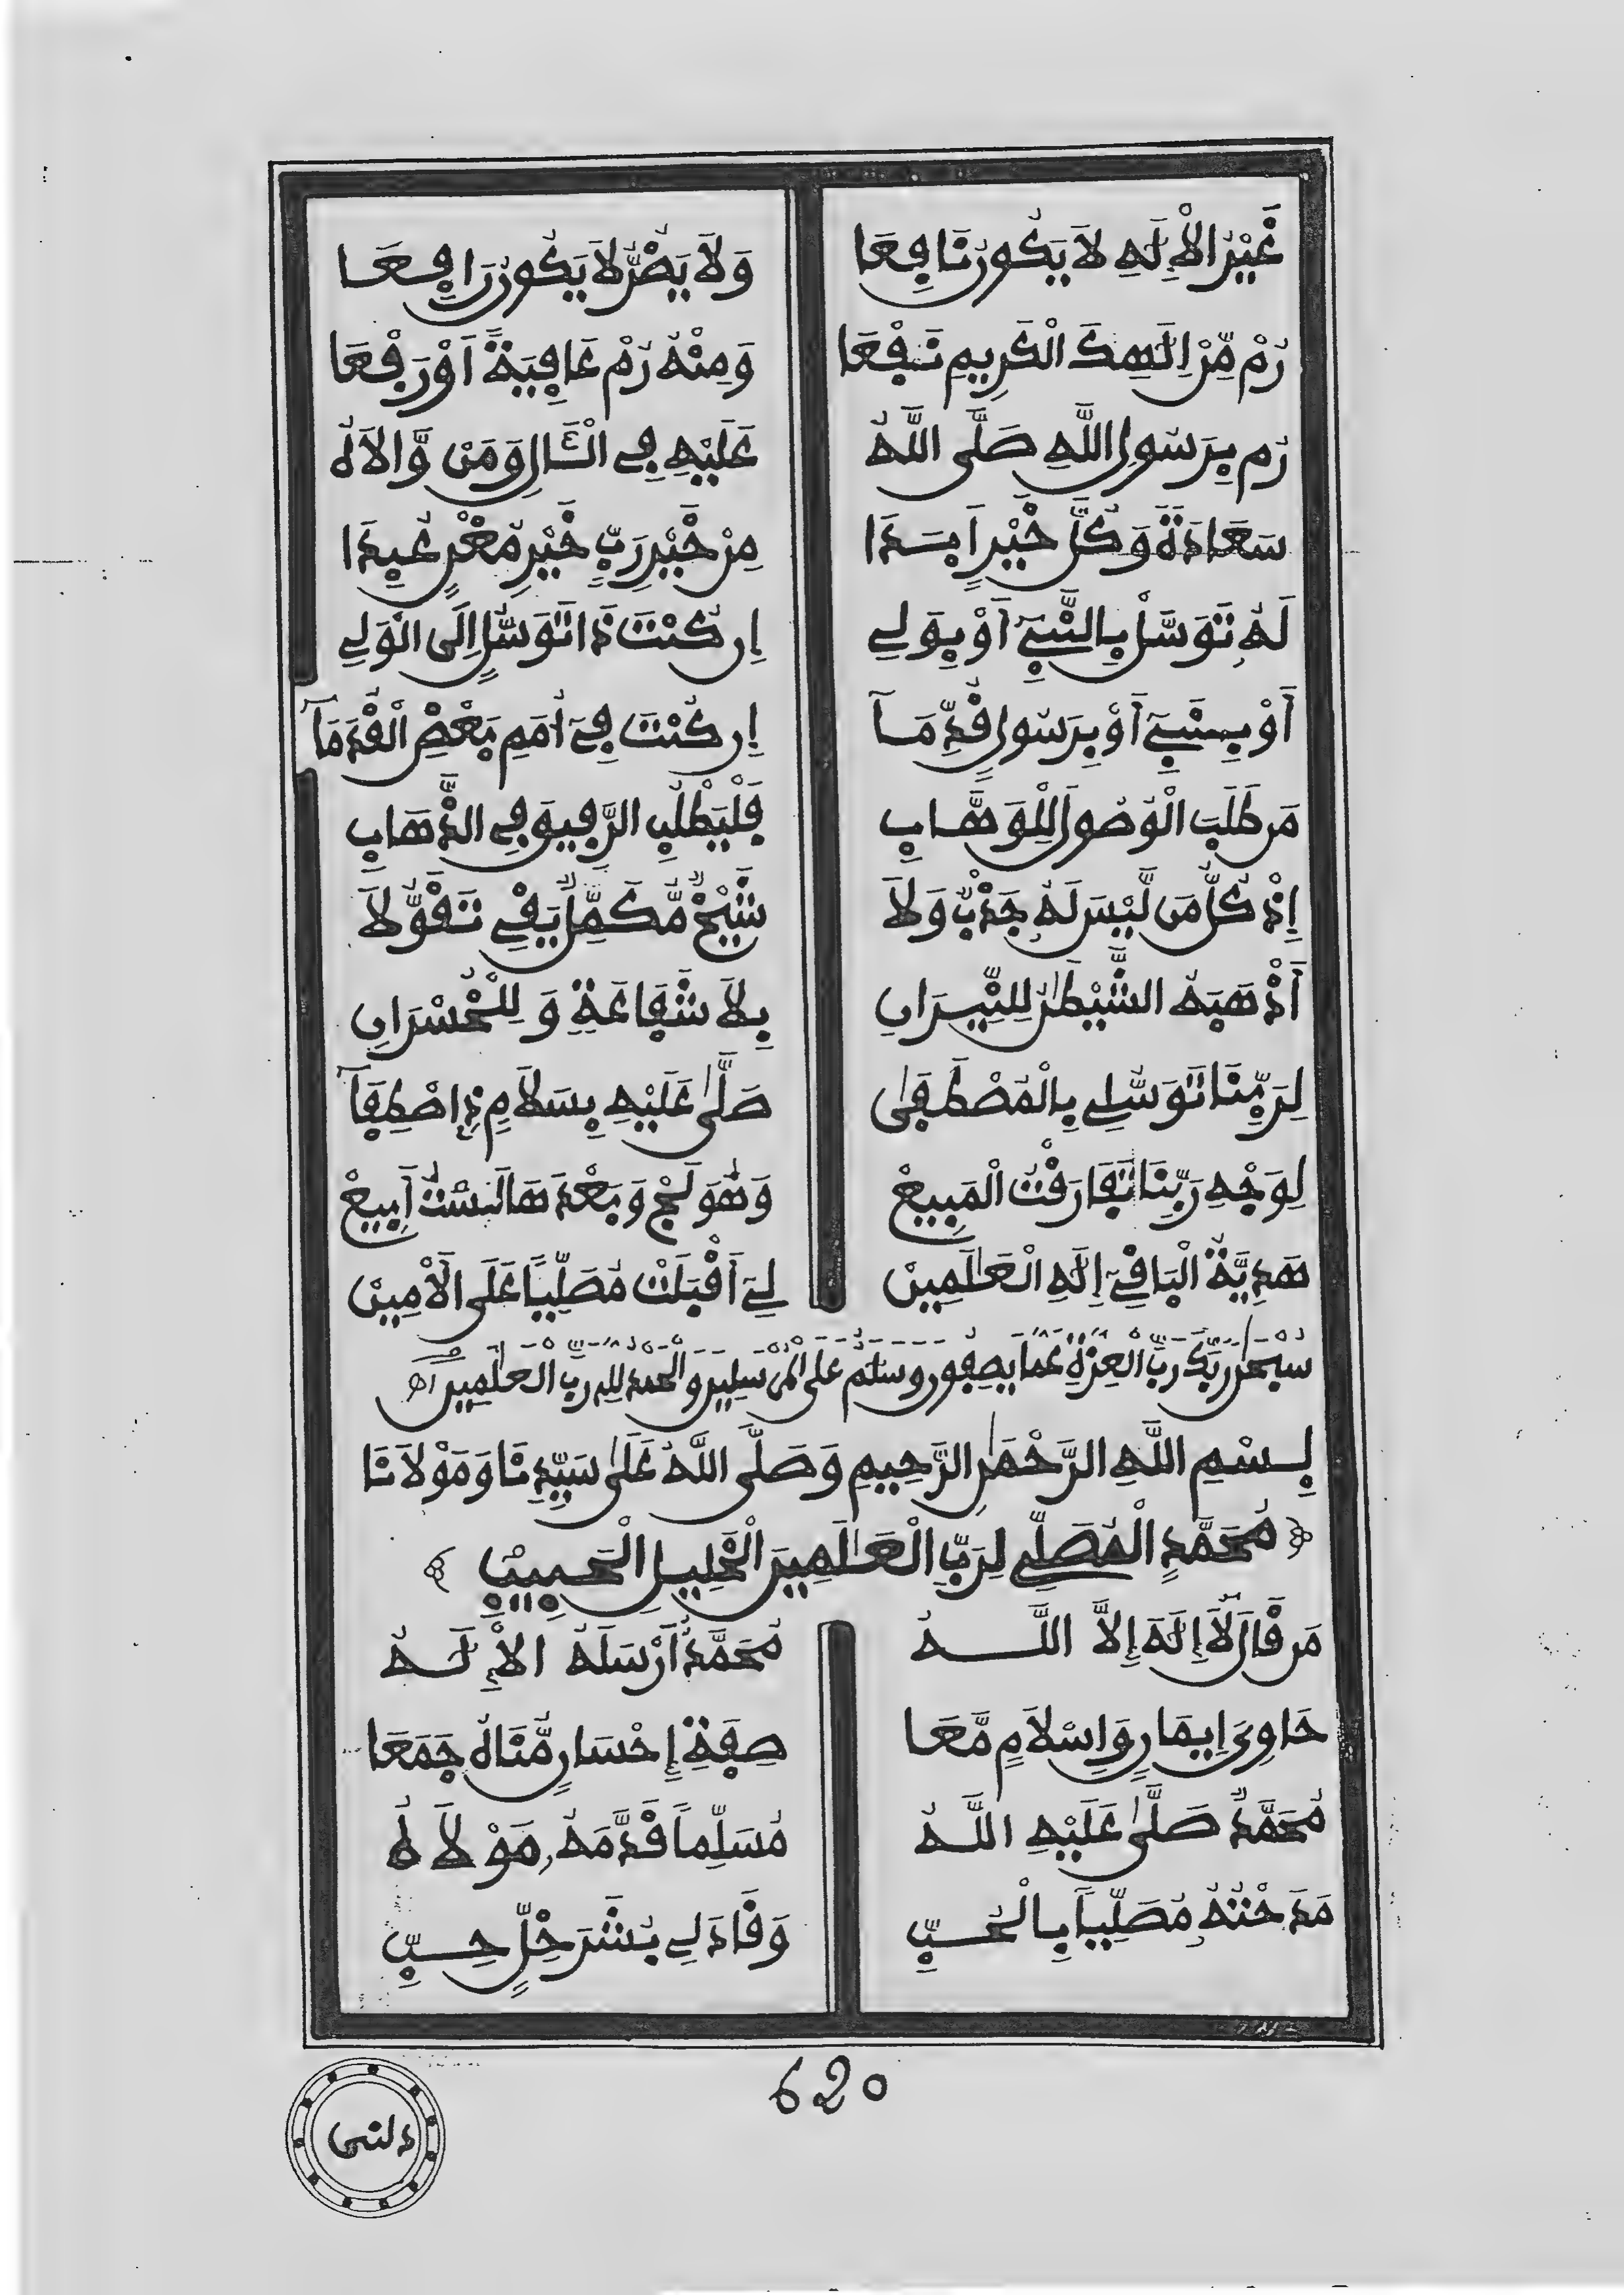 غَيْرُ الْإِلَهِ لَا يَكُونُ نَافِعَا وَلَا يَضُرُّ لَا يَكُونُ رَافِعَا
رُمْ مِّنْ إِلَهِكَ الْكَرِيمِ نَفْعَا وَمِنْهُ رُمْ عَافِيَةً أَوْ رَفْعَا
رُم بِرَسُولِ اللَّهِ صَلَّى اللَّهُ عَلَيْهِ فِي الْآلِ وَمَن وَّالَاهُ
سَعَادَةً وَكُلَّ خَيْرٍ أَبَدَا مِنْ خَيْرِ رَبٍّ خَيْرِ مُغْنٍ عُبِدَا
لَهُ تَوَسَّلْ بِالنَّبِيِّ أَوْ بِوَلِي إِن كُنْتَ ذَا تَوَسُّلٍ إِلَى الْوَلِي
أَوْ بِنَبِيٍّ أَوْ بِرَسُولٍ قُدِّمَا إِن كُنْتَ فِي أُمَمِ بَعْضِ الْقُدَمَا
مَن طَلَبَ الْوُصُولَ لِلْوَهَّابِ فَلْيَطْلُبِ الرَّفِيقَ فِي الذَّهَابِ
إِذْ كُلُّ مَن لَّيْسَ لَهُ جَذْبٌ وَلَا شَيْخٌ مُّكَمِّلٌ يَقِي تَقَوُّلَا
أَذْهَبَهُ الشَّيْطَٰنُ لِلنِّيرَانِ بِلَا شَفَاعَةٍ وَلِلْخُسْرَانِ
لِرَبِّنَا تَوَسُّلِي بِالْمُصْطَفَىٰ صَلَّىٰ عَلَيْهِ بِسَلَامٍ ذِي اصْطِفَا
لِوَجْهِ رَبِّنَا تَفَارَقْتُ الْمَبِيعْ وَهُوَ لَجْ وَبَعْدَهَا لَسْتُ أَبِيعْ
هَدِيَّةُ الْبَاقِي إِلَهِ الْعَٰلَمِينْ لِي أَقْبَلَتْ مُصَلِّيًا عَلَى الْأَمِينْ
سُبْحَٰنَ رَبِّكَ رَبِّ الْعِزَّةِ عَمَّا يَصِفُونَ وَسَلَٰمٌ عَلَى الْمُرْسَلِينَ وَالْحَمْدُ لِلَّهِ رَبِّ الْعَٰلَمِينَ اهـ
بِسْمِ اللَّهِ الرَّحْمَٰنِ الرَّحِيمِ وَصَلَّى اللَّهُ عَلَىٰ سَيِّدِنَا وَمَوْلَانَا
مُحَمَّدٍ الْمُصَلِّي لِرَبِّ الْعَٰلَمِينَ الْخَلِيلِ الْحَبِيبِ
مَن قَالَ لَا إِلَهَ إِلَّا اللَّهُ مُحَمَّدٌ أَرْسَلَهُ الْإِلَهُ
حَاوِيَ إِيمَانٍ وَإِسْلَامٍ مَّعَا صِفَةُ إِحْسَانٍ مُّنَاهُ جَمَعَا
مُحَمَّدٌ صَلَّىٰ عَلَيْهِ اللَّهُ مُسَلِّمًا قَدَّمَهُ مَوْلَاهُ
مَدَحْتُهُ مُصَلِّيًا بِالْحُبِّ وَقَادَ لِي بُشْرَ خِلٍّ حِبِّ
620